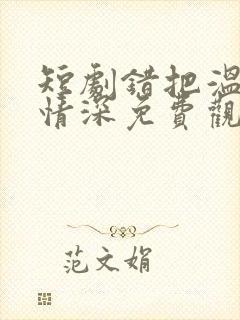 短劇錯把溫
情深免費觀
范文娟